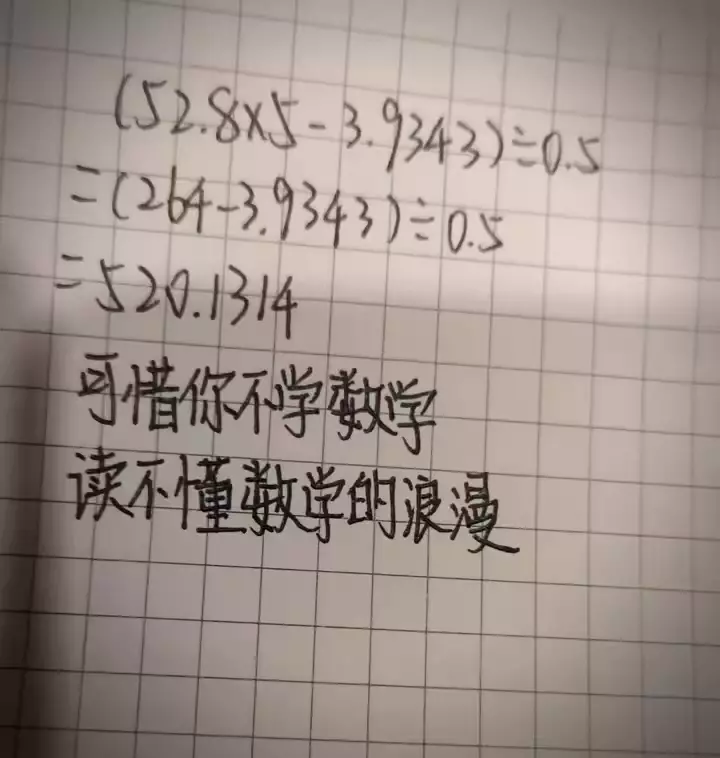 (52.8×5-3.9343)÷0.5
=(264-3.9343)÷0.5
=520.1314
可惜你不学数学
读不懂数学的浪漫